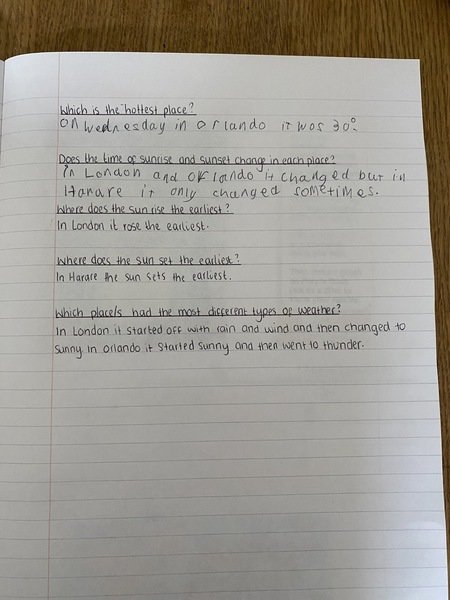 Which is the hottest place?
On Wednesday in Orlando it was 30°.
Does the time of sunrise and sunset change in each place?
In London and Orlando it changed but in
Harare it only changed sometimes.
Where does the sun rise the earliest?
In London it rose the earliest.
Where does the sun set the earliest?
In Harare the sun sets the earliest.
Which place/s had the most different types of weather?
In London it started off with rain and wind and then changed to
sunny. In Orlando it started sunny and then went to thunder.